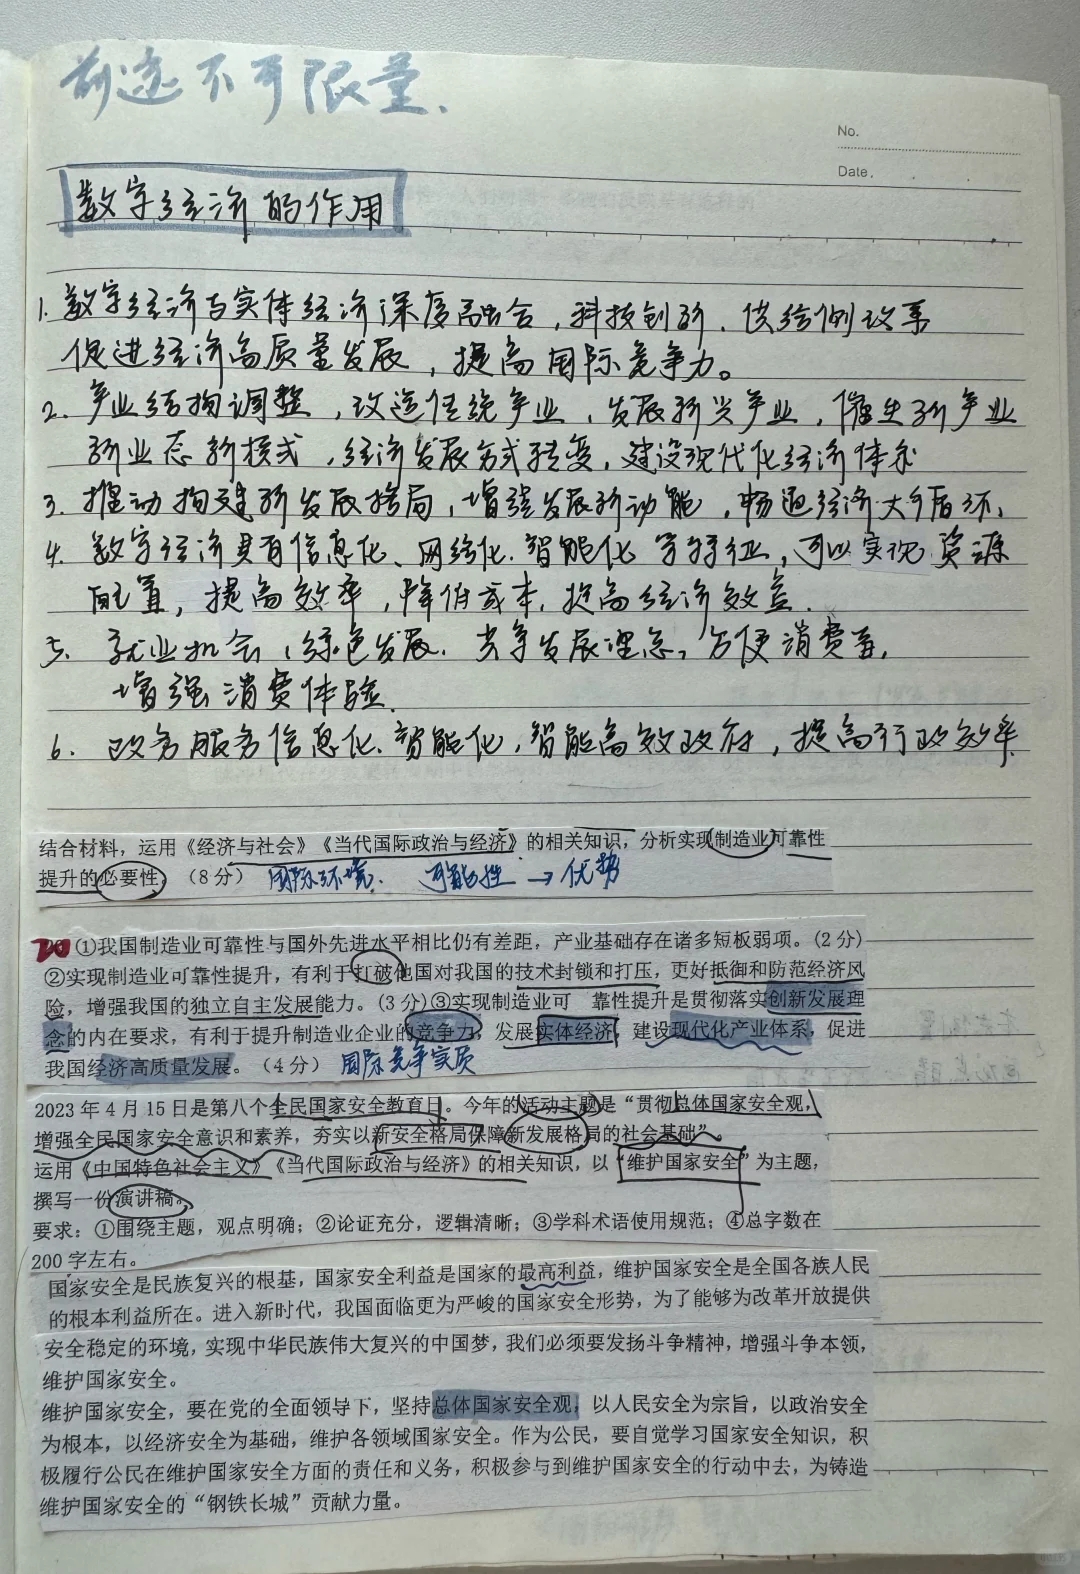 前途不可限量.
No.
Date.
数字经济的作用
1. 数字经济与实体经济深度融合，科技创新、供给侧改革
促进经济高质量发展，提高国际竞争力。
2. 产业结构调整，改造传统产业，发展新兴产业，催生新产业
新业态新模式，经济发展方式转变，建设现代化经济体系
3. 推动构建新发展格局，增强发展新动能，畅通经济大循环，
4. 数字经济具有信息化、网络化、智能化等特征，可以实现资源
配置，提高效率，降低成本，提高经济效益.
5. 就业机会，绿色发展、共享发展理念，方便消费者，
增强消费体验.
6. 政务服务信息化、智能化，智能高效政府，提高行政效率
结合材料，运用《经济与社会》《当代国际政治与经济》的相关知识，分析实现制造业可靠性
提升的必要性。（8分） 国际环境、 可能性 → 优势
20 ①我国制造业可靠性与国外先进水平相比仍有差距，产业基础存在诸多短板弱项。(2分)
②实现制造业可靠性提升，有利于打破他国对我国的技术封锁和打压，更好抵御和防范经济风
险，增强我国的独立自主发展能力。(3分)③实现制造业可 靠性提升是贯彻落实创新发展理
念的内在要求，有利于提升制造业企业的竞争力，发展实体经济，建设现代化产业体系，促进
我国经济高质量发展。（4分） 国际竞争实质
2023年4月15日是第八个全民国家安全教育日。今年的活动主题是“贯彻总体国家安全观，
增强全民国家安全意识和素养，夯实以新安全格局保障新发展格局的社会基础”。
运用《中国特色社会主义》《当代国际政治与经济》的相关知识，以“维护国家安全”为主题，
撰写一份演讲稿。
要求：①围绕主题，观点明确；②论证充分，逻辑清晰；③学科术语使用规范；④总字数在
200字左右。
国家安全是民族复兴的根基，国家安全利益是国家的最高利益，维护国家安全是全国各族人民
的根本利益所在。进入新时代，我国面临更为严峻的国家安全形势，为了能够为改革开放提供
安全稳定的环境，实现中华民族伟大复兴的中国梦，我们必须要发扬斗争精神，增强斗争本领，
维护国家安全。
维护国家安全，要在党的全面领导下，坚持总体国家安全观，以人民安全为宗旨，以政治安全
为根本，以经济安全为基础，维护各领域国家安全。作为公民，要自觉学习国家安全知识，积
极履行公民在维护国家安全方面的责任和义务，积极参与到维护国家安全的行动中去，为铸造
维护国家安全的“钢铁长城”贡献力量。